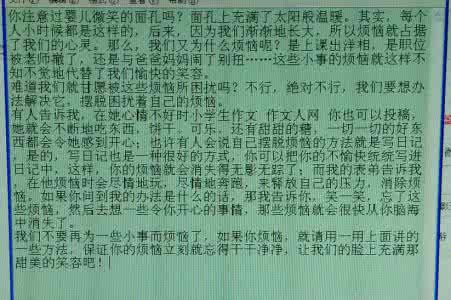 你注意过婴儿微笑的面孔吗?面孔上充满了太阳般温暖。其实,每个
人小时候都是这样的,后来,因为我们渐渐地长大,所以烦恼就占据
了我们的心灵。那么,我们又为什么烦恼呢?是上课出洋相,是职位
被老师撤了,还是与爸爸妈妈闹了别扭……这些小事的烦恼就这样不
知不觉地代替了我们愉快的笑容。
难道我们就甘愿被这些烦恼所困扰吗?不行,绝对不行,我们要想办
法解决它。摆脱困扰着自己的烦恼。
有人告诉我,在她心情不好时小学生作文 作文人网 你也可以投稿,
她就会不断地吃东西,饼干、可乐,还有甜甜的糖,一切一切的好东
西都会令她感到开心;也许有人会说自己摆脱烦恼的方法就是写日记
,是的,写日记也是一种很好的方式,你可以把你的不愉快统统写进
日记中,这样,你的烦恼就会消失得无影无踪了;而我的表弟告诉我
,在他烦恼时会尽情地玩,尽情地奔跑,来释放自己的压力,消除烦
恼。如果你问到我的办法是什么的话,那我告诉你,笑一笑,忘了这
些烦恼,然后去想一些令你开心的事情,那些烦恼就会很快从你脑海
中消失了。
我们不要再为一些小事而烦恼了,如果你烦恼,就请用一用上面讲的
一些方法,保证你的烦恼立刻就忘得干干净净,让我们的脸上充满那
甜美的笑容吧!